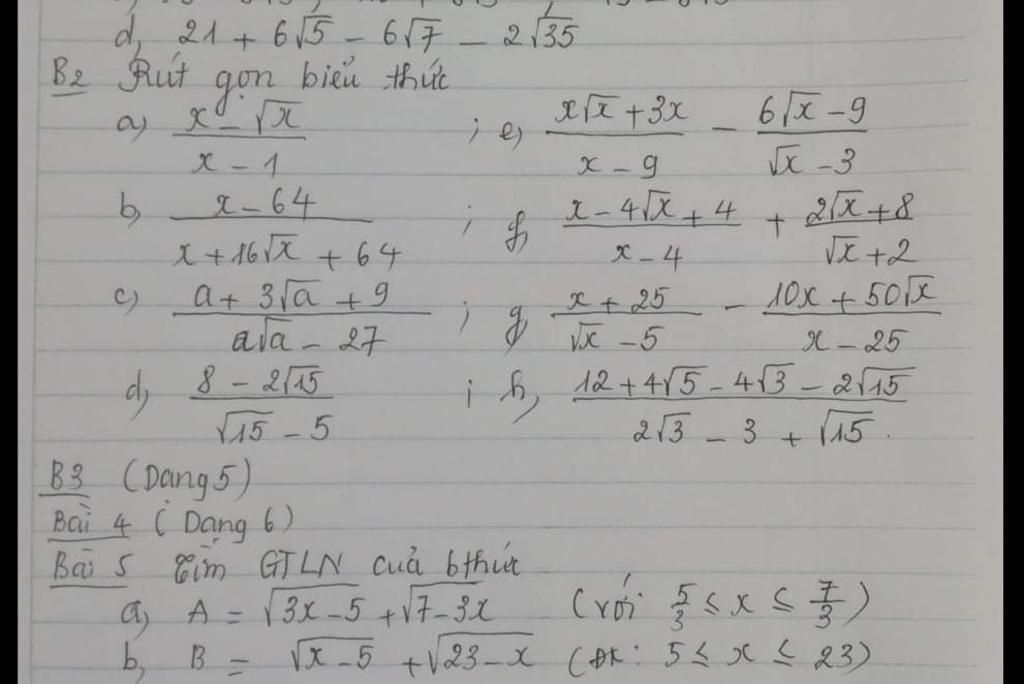 d, 21 + 6√5 − 6√7 − 2√35
B2 Rút gọn biểu thức
a) (x − √x)/(x − 1) ; e, (x√x + 3x)/(x − 9) − (6√x − 9)/(√x − 3)
b, (x − 64)/(x + 16√x + 64) ; f, (x − 4√x + 4)/(x − 4) + (2√x + 8)/(√x + 2)
c) (a + 3√a + 9)/(a√a − 27) ; g, (x + 25)/(√x − 5) − (10x + 50√x)/(x − 25)
d, (8 − 2√15)/(√15 − 5) ; h, (12 + 4√5 − 4√3 − 2√15)/(2√3 − 3 + √15).
B3 (Dạng 5)
Bài 4 (Dạng 6)
Bài 5 Tìm GTLN của bthức
a, A = √(3x − 5) + √(7 − 3x) (với 5/3 ≤ x ≤ 7/3)
b, B = √(x − 5) + √(23 − x) (ĐK: 5 ≤ x ≤ 23)